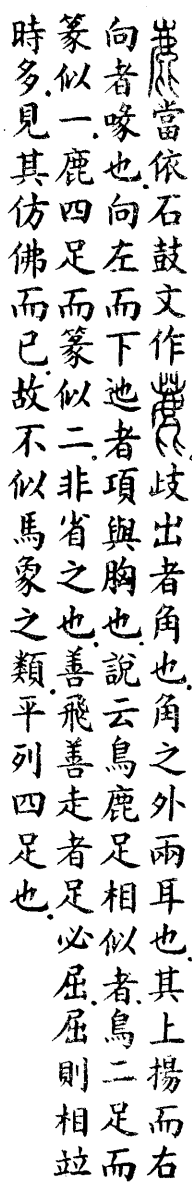 當依石鼓文作 歧出者角也角之外兩耳也其上揚而右
向者喙也向左而下迆者項與胸也說云鳥鹿足相似者鳥二足而
篆似一鹿四足而篆似二非省之也善飛善走者足必屈屈則相竝
時多見其仿佛而已故不似馬象之類平列四足也